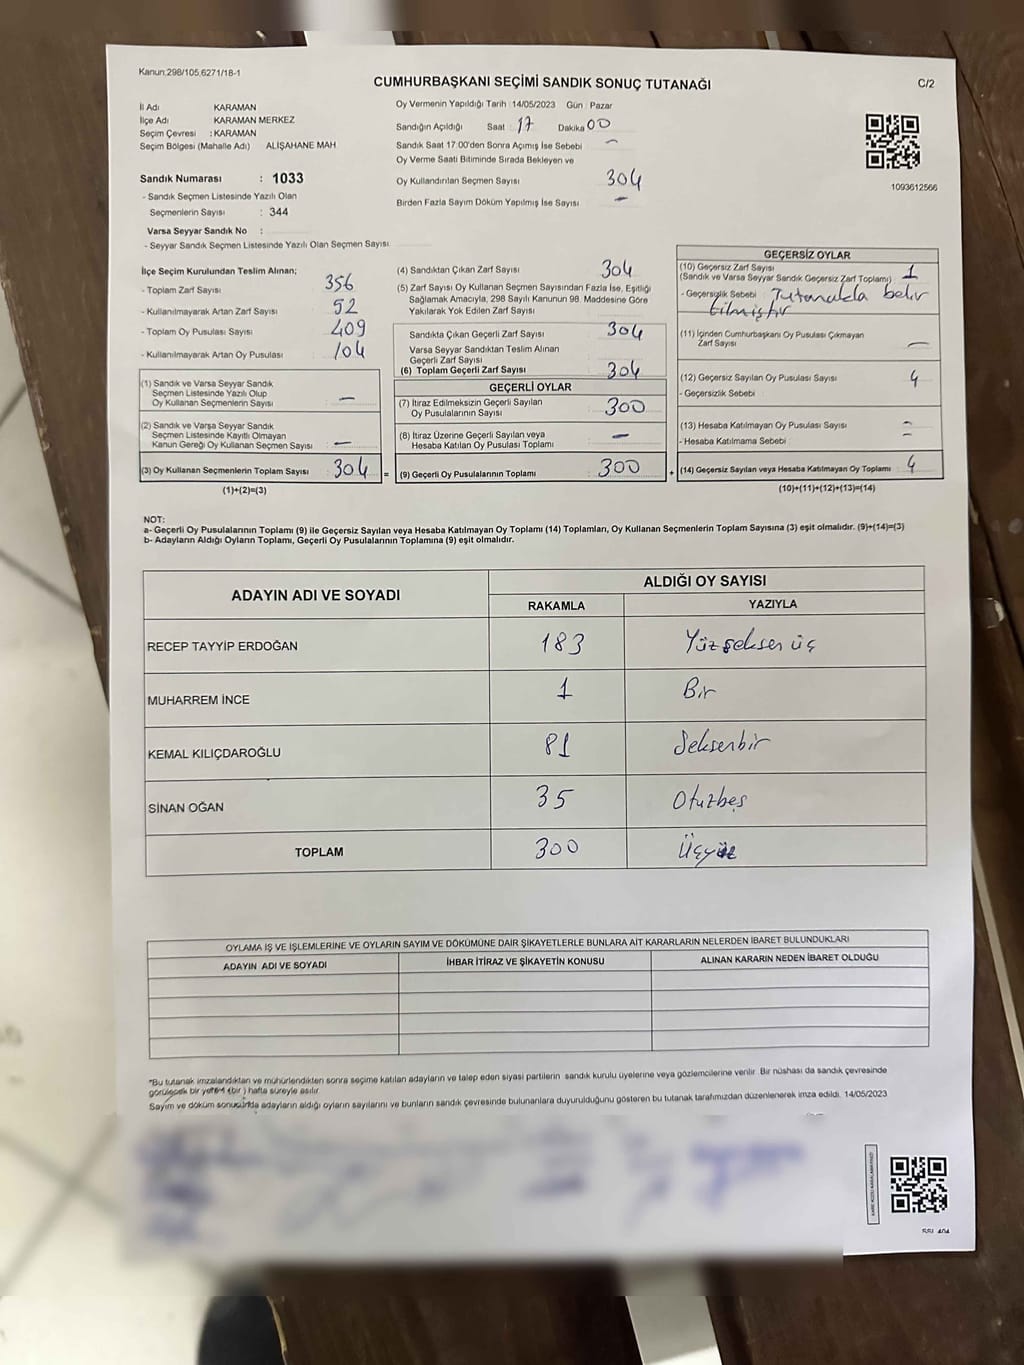 Kanun:298/105,6271/18-1
CUMHURBAŞKANI SEÇİMİ SANDIK SONUÇ TUTANAĞI
C/2
İl Adı KARAMAN
İlçe Adı KARAMAN MERKEZ
Seçim Çevresi : KARAMAN
Seçim Bölgesi (Mahalle Adı) ALİŞAHANE MAH
Sandık Numarası : 1033
- Sandık Seçmen Listesinde Yazılı Olan
Seçmenlerin Sayısı : 344
Varsa Seyyar Sandık No :
- Seyyar Sandık Seçmen Listesinde Yazılı Olan Seçmen Sayısı
Oy Vermenin Yapıldığı Tarih : 14/05/2023 Gün : Pazar
Sandığın Açıldığı Saat : 17 Dakika 00
Sandık Saat 17.00'den Sonra Açımış İse Sebebi
Oy Verme Saati Bitiminde Sırada Bekleyen ve
Oy Kullandırılan Seçmen Sayısı 304
Birden Fazla Sayım Döküm Yapılmış İse Sayısı —
1093612566
İlçe Seçim Kurulundan Teslim Alınan;
- Toplam Zarf Sayısı : 356
- Kullanılmayarak Artan Zarf Sayısı : 52
- Toplam Oy Pusulası Sayısı : 409
- Kullanılmayarak Artan Oy Pusulası : 104
(1) Sandık ve Varsa Seyyar Sandık
Seçmen Listesinde Yazılı Olup
Oy Kullanan Seçmenlerin Sayısı —
(2) Sandık ve Varsa Seyyar Sandık
Seçmen Listesinde Kayıtlı Olmayan
Kanun Gereği Oy Kullanan Seçmen Sayısı —
(3) Oy Kullanan Seçmenlerin Toplam Sayısı 304 =
(1)+(2)=(3)
(4) Sandıktan Çıkan Zarf Sayısı 304
(5) Zarf Sayısı Oy Kullanan Seçmen Sayısından Fazla İse, Eşitliği
Sağlamak Amacıyla, 298 Sayılı Kanunun 98. Maddesine Göre
Yakılarak Yok Edilen Zarf Sayısı
Sandıkta Çıkan Geçerli Zarf Sayısı 304
Varsa Seyyar Sandıktan Teslim Alınan
Geçerli Zarf Sayısı
(6) Toplam Geçerli Zarf Sayısı 304
GEÇERLİ OYLAR
(7) İtiraz Edilmeksizin Geçerli Sayılan
Oy Pusulalarının Sayısı 300
(8) İtiraz Üzerine Geçerli Sayılan veya
Hesaba Katılan Oy Pusulası Toplamı —
(9) Geçerli Oy Pusulalarının Toplamı 300 +
GEÇERSİZ OYLAR
(10) Geçersiz Zarf Sayısı
(Sandık ve Varsa Seyyar Sandık Geçersiz Zarf Toplamı) 1
- Geçersizlik Sebebi : Tutanakta belir
tilmiştir
(11) İçinden Cumhurbaşkanı Oy Pusulası Çıkmayan
Zarf Sayısı —
(12) Geçersiz Sayılan Oy Pusulası Sayısı 4
- Geçersizlik Sebebi :
(13) Hesaba Katılmayan Oy Pusulası Sayısı : —
- Hesaba Katılmama Sebebi : —
(14) Geçersiz Sayılan veya Hesaba Katılmayan Oy Toplamı 4
(10)+(11)+(12)+(13)=(14)
NOT:
a- Geçerli Oy Pusulalarının Toplamı (9) ile Geçersiz Sayılan veya Hesaba Katılmayan Oy Toplamı (14) Toplamları, Oy Kullanan Seçmenlerin Toplam Sayısına (3) eşit olmalıdır. (9)+(14)=(3)
b- Adayların Aldığı Oyların Toplamı, Geçerli Oy Pusulalarının Toplamına (9) eşit olmalıdır.
ADAYIN ADI VE SOYADI
ALDIĞI OY SAYISI
RAKAMLA YAZIYLA
RECEP TAYYİP ERDOĞAN 183 Yüzseksen üç
MUHARREM İNCE 1 Bir
KEMAL KILIÇDAROĞLU 81 Seksenbir
SİNAN OĞAN 35 Otuzbeş
TOPLAM 300 Üçyüz
OYLAMA İŞ VE İŞLEMLERİNE VE OYLARIN SAYIM VE DÖKÜMÜNE DAİR ŞİKAYETLERLE BUNLARA AİT KARARLARIN NELERDEN İBARET BULUNDUKLARI
ADAYIN ADI VE SOYADI İHBAR İTİRAZ VE ŞİKAYETİN KONUSU ALINAN KARARIN NEDEN İBARET OLDUĞU
*Bu tutanak imzalandıktan ve mühürlendikten sonra seçime katılan adayların ve talep eden siyasi partilerin sandık kurulu üyelerine veya gözlemcilerine verilir. Bir nüshası da sandık çevresinde
görülecek bir yere 1 (bir ) hafta süreyle asılır
Sayım ve döküm sonucunda adayların aldığı oyların sayılarını ve bunların sandık çevresinde bulunanlara duyurulduğunu gösteren bu tutanak tarafımızdan düzenlenerek imza edildi. 14/05/2023